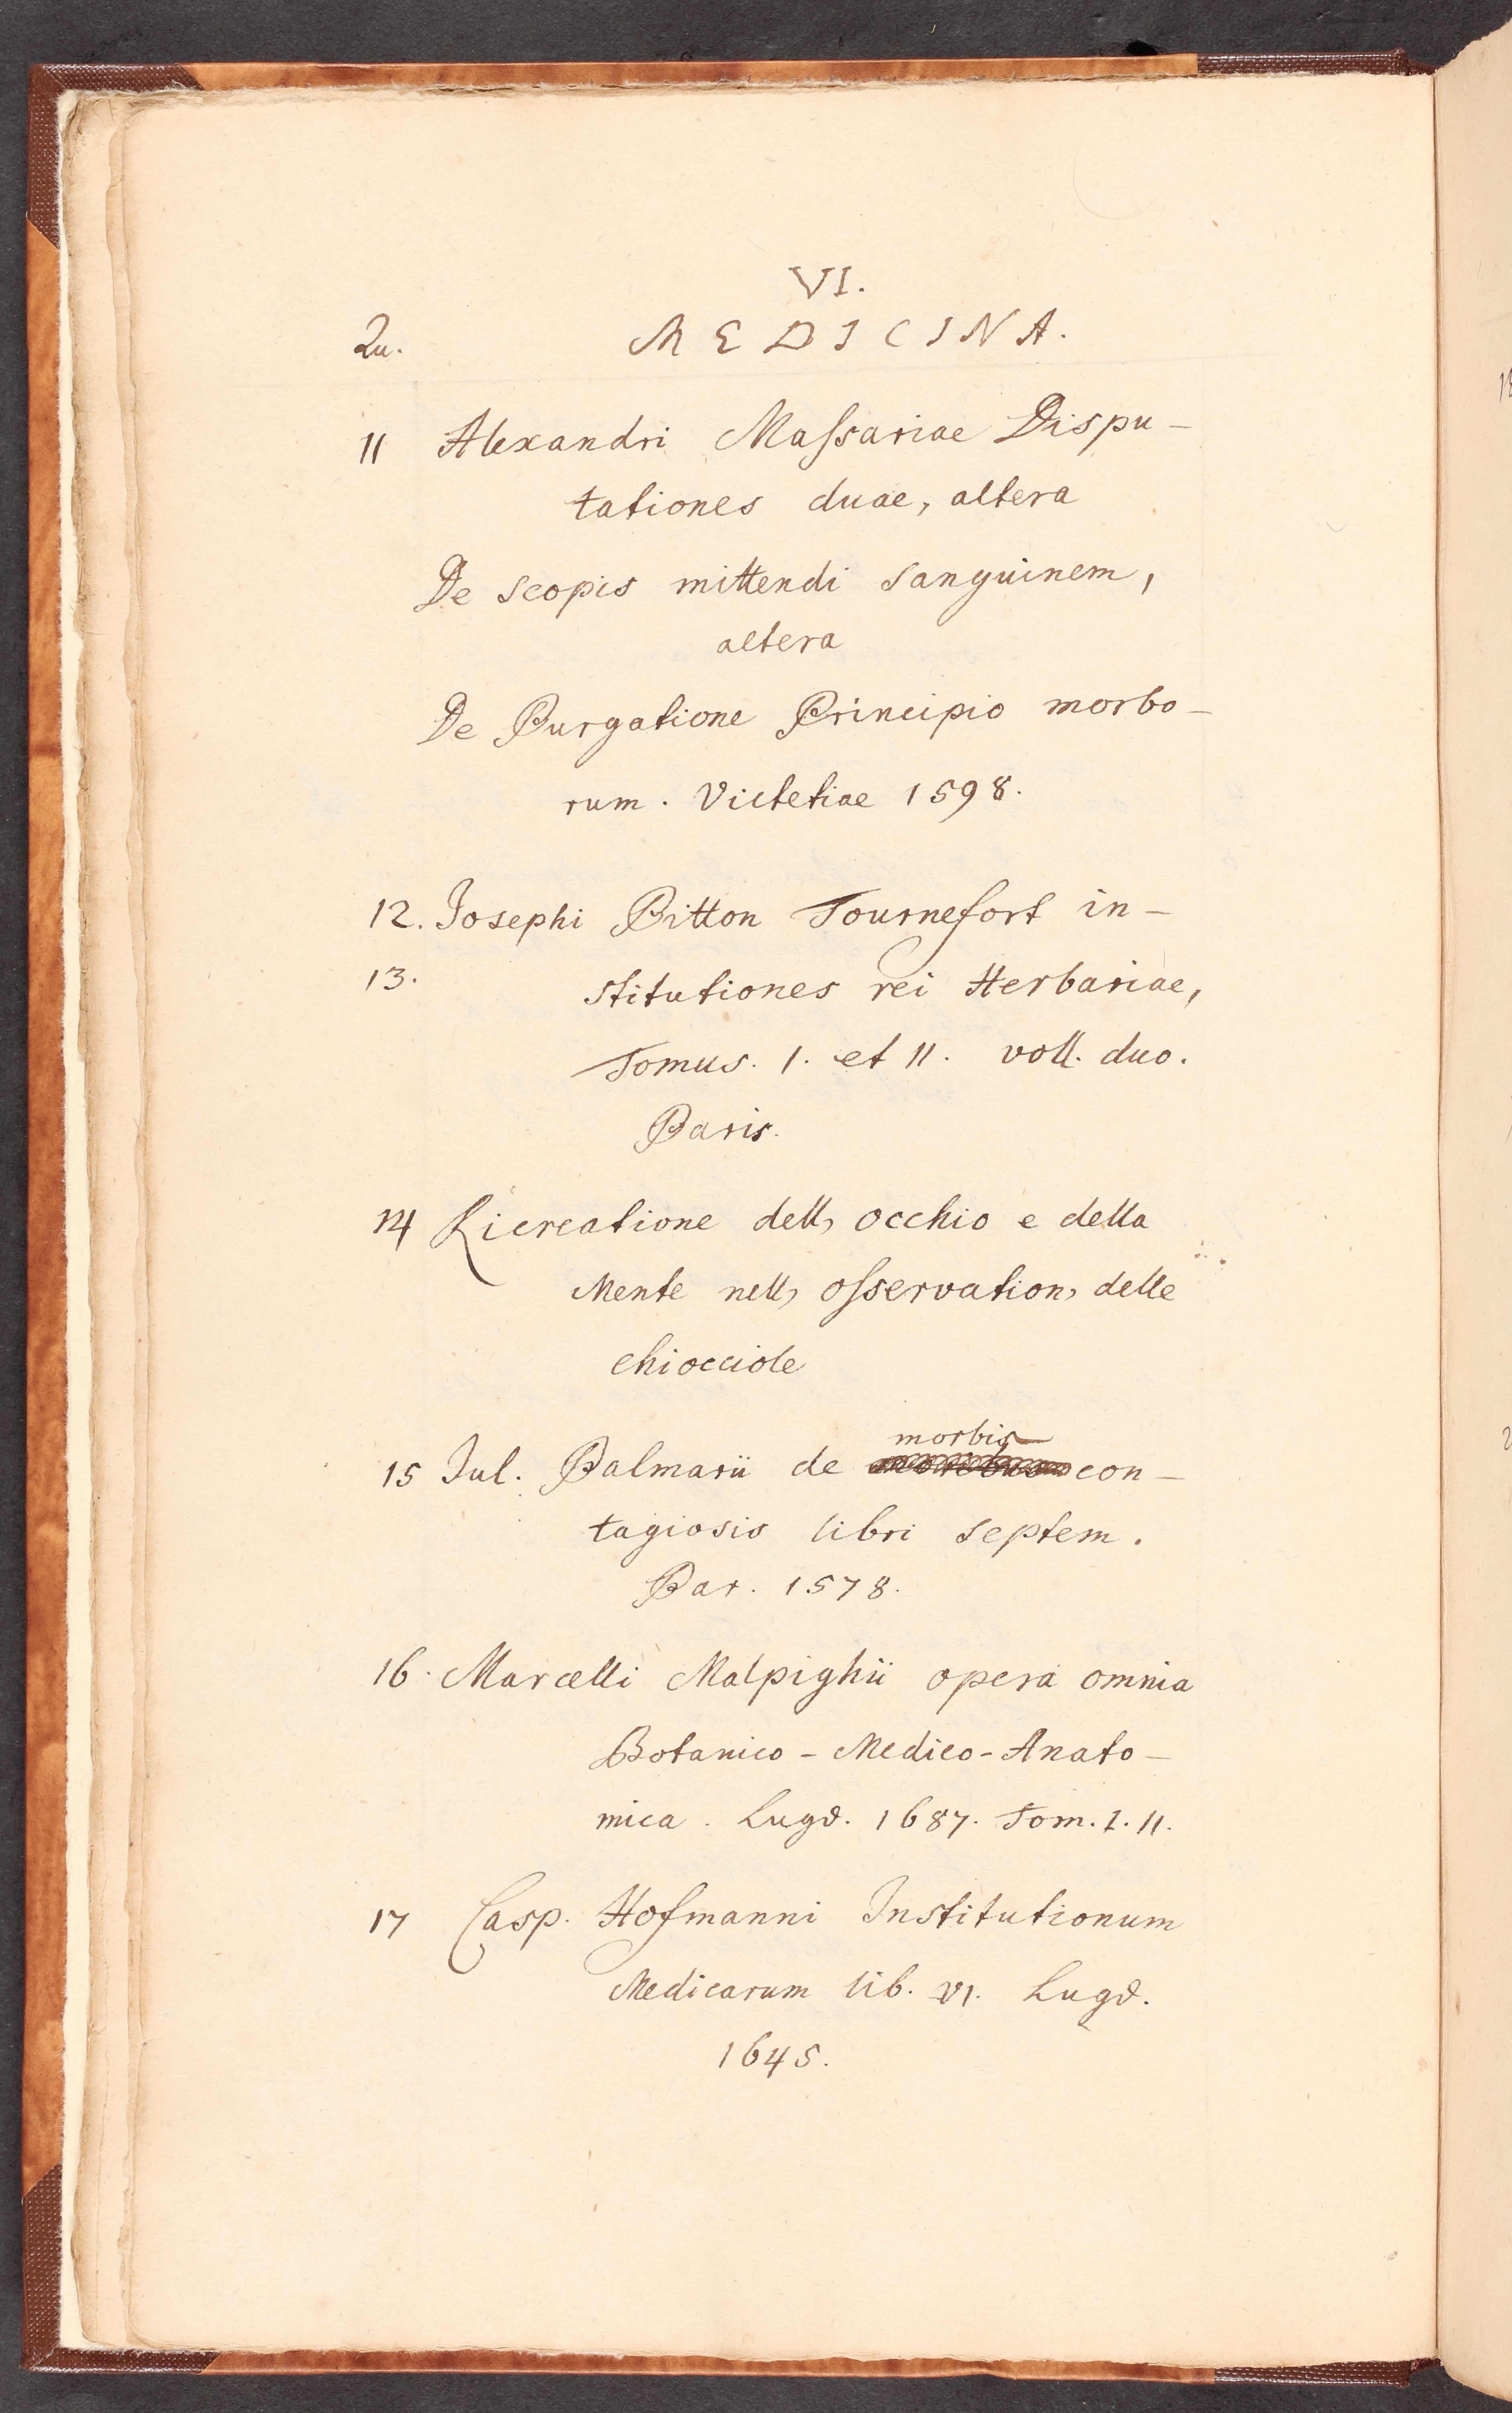 VI.
Qu. MEDICINA.
11 Alexandri Maſsariae Dispu-
tationes duae, altera
De scopis mittendi sanguinem,
altera
De Purgatione Principio morbo-
rum. Victetiae 1598.
12. Josephi Pitton Tournefort in-
13. stitutiones rei Herbariae,
Tomus. I. et II. voll. duo.
Paris.
14 Ricreatione dell, occhio e della
Mente nell, oſservation, delle
chiocciole
morbis
15 Jul. Palmarii de con-
tagiosis libri septem.
Par. 1578.
16. Marcelli Malpighii opera omnia
Botanico-Medico-Anato-
mica. Lugd. 1687. Tom. I. II.
17 Casp. Hofmanni Institutionum
Medicarum lib. VI. Lugd.
1645.